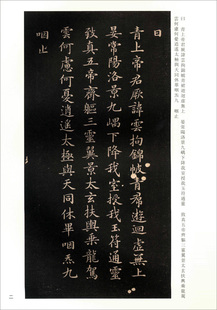 青上帝君厥諱雲拘錦帔青裙遊迴虛無上
晏常陽洛景九嵎下降我室授我玉符通靈
致真五帝齊軀三靈翼景太玄扶輿乘龍駕
雲何慮何憂逍遙太極與天同休畢咽炁九
咽止
二